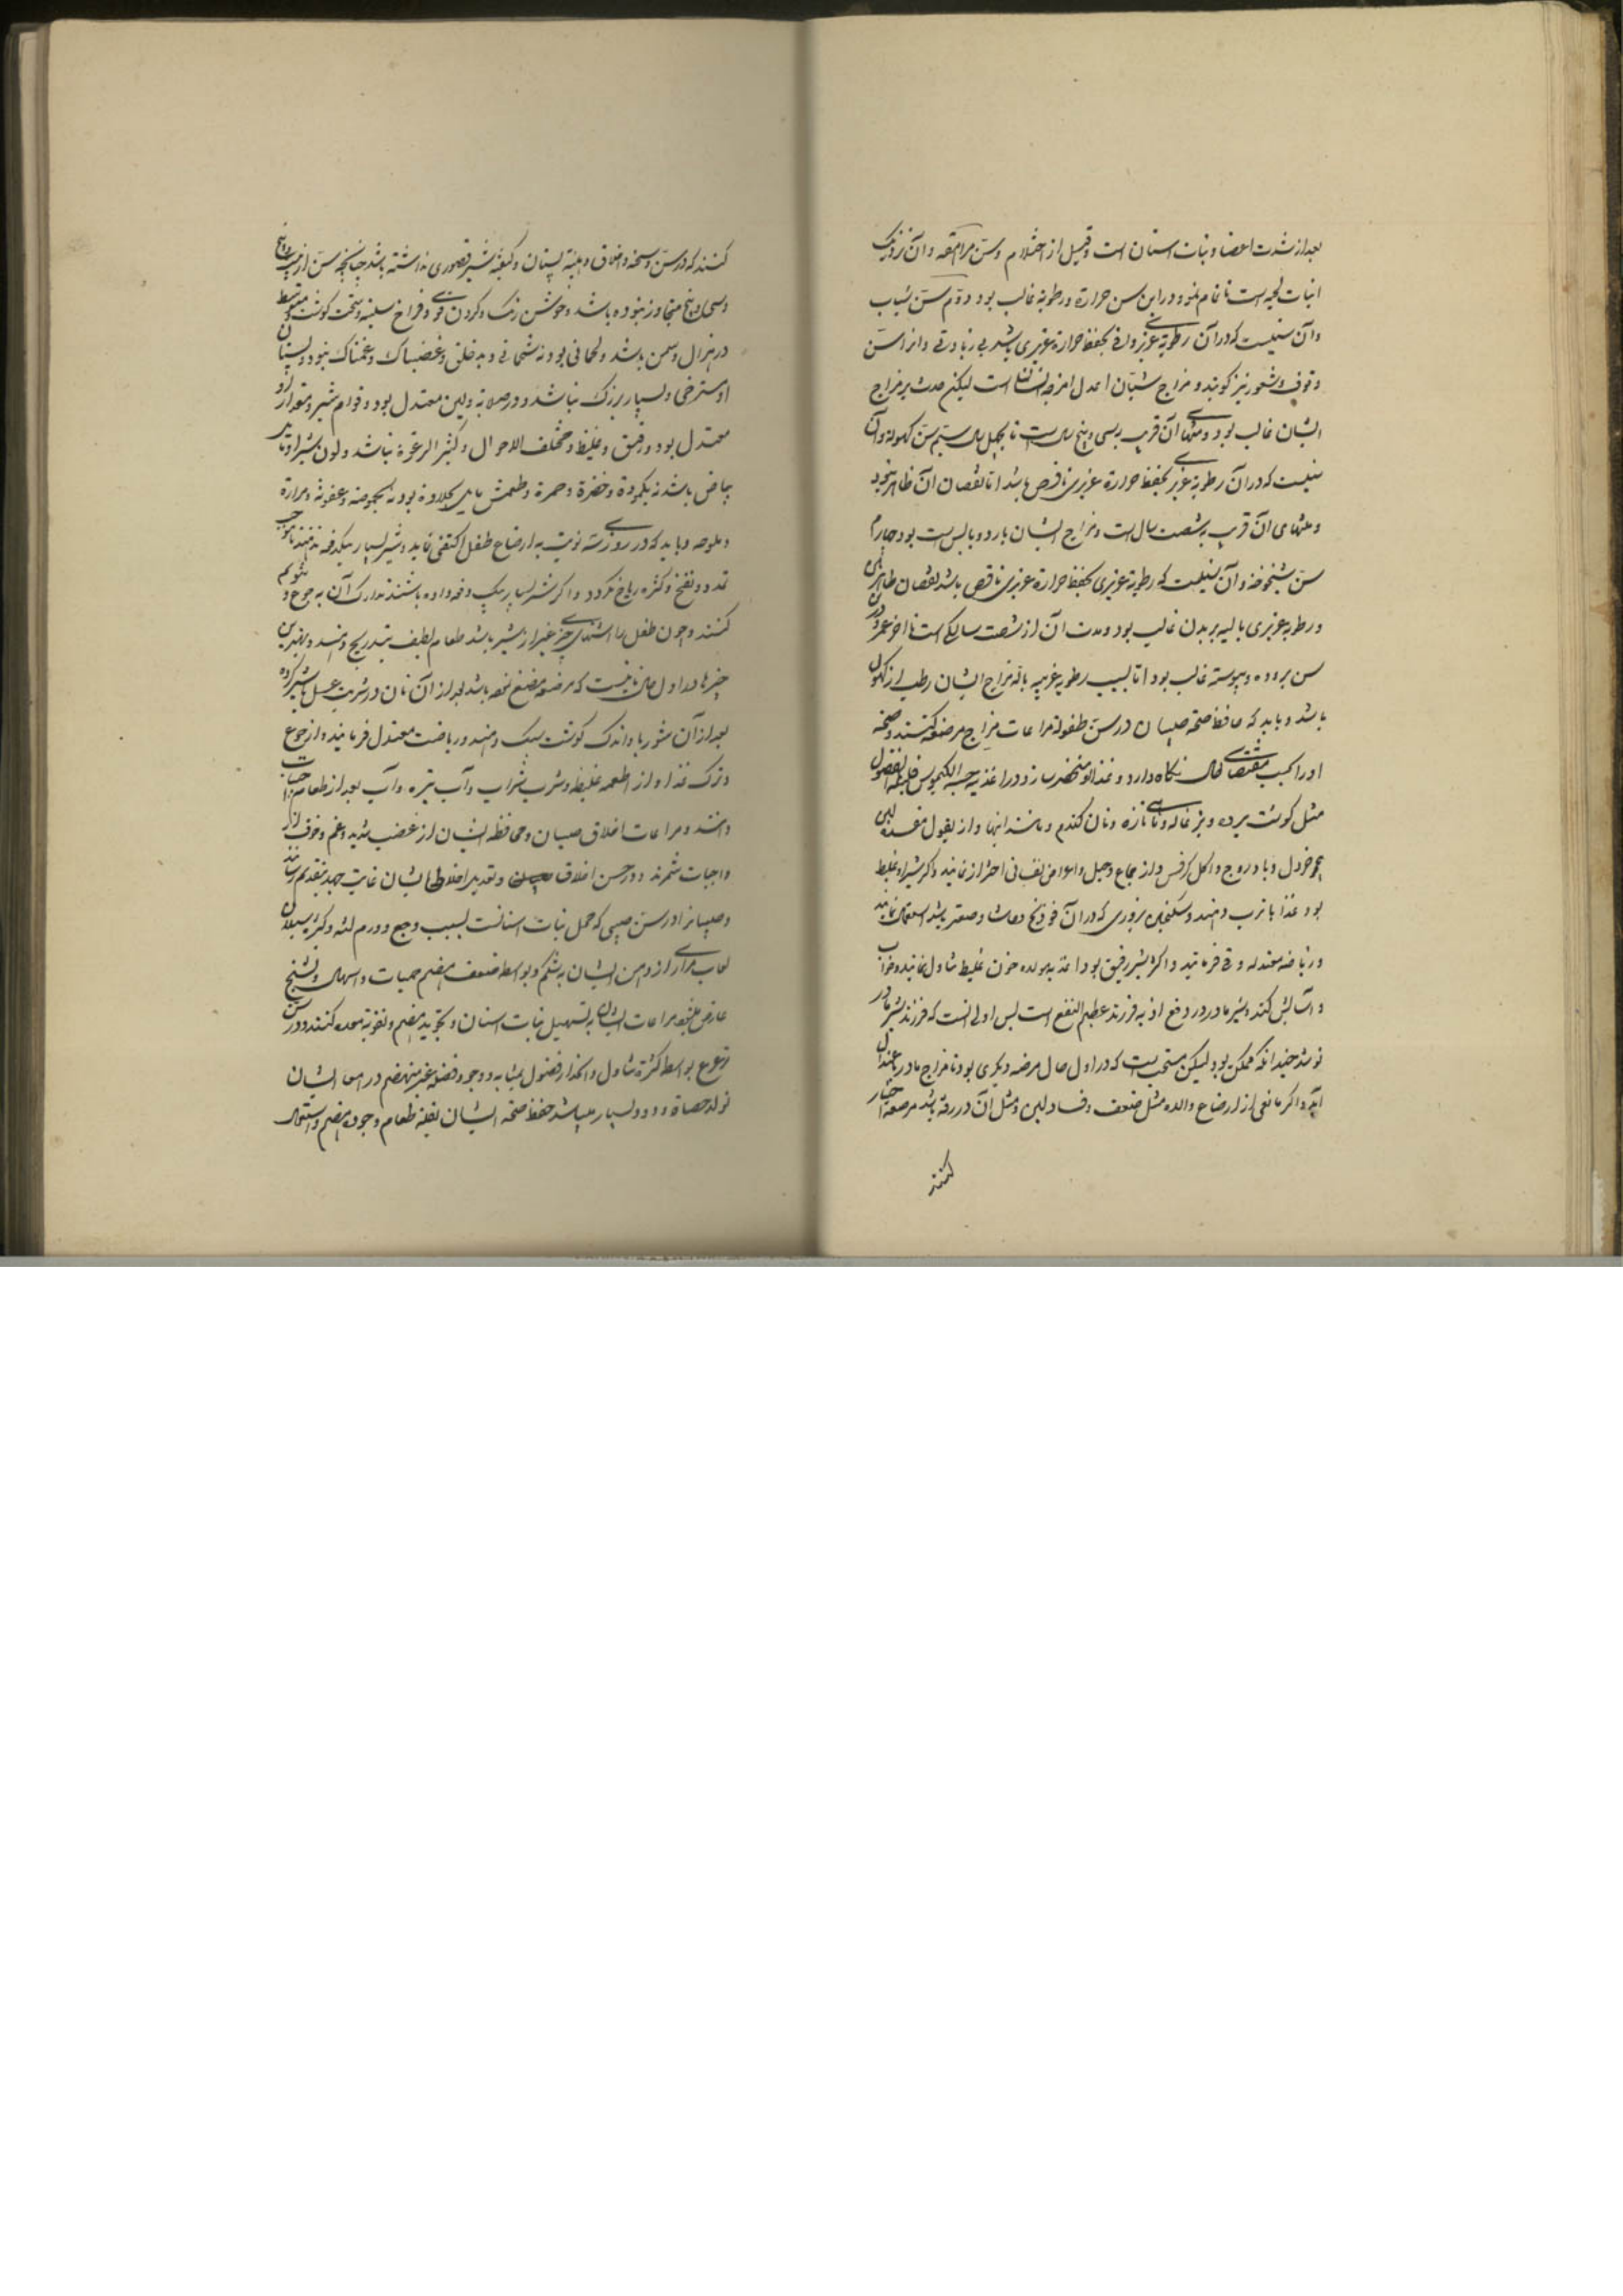 بعد از شدت اعضا و نبات اسنان است و قبل از احتلام و سن مراهقه و آن نزدیک
انبات لحیه است تا تمام نمو و در این سن حرارة و رطوبة غالب بود دوم سن شباب
و آن سنیست که در آن رطوبة غریزی وافی بحفظ حرارة غریزی باشد بی زیادتی و انرا سن
وقوف و شعور نیز گویند و مزاج شبان اعدل امزجه انسان است لیکن حدت بر مزاج
ایشان غالب بود و منتهای آن قریب بسی و پنج سال است تا بچهل سال سیم سن کهولة و آن
سنیست که در آن رطوبة غریزی بحفظ حرارة غریزی ناقص باشد اما نقصان آن ظاهر نبود
و منتهای آن قریب بشصت سال است و مزاج ایشان بارد و یابس است بود چهارم
سن شیخوخة و آن سنیست که رطوبة غریزی بحفظ حرارة غریزی ناقص باشد نقصان ظاهر
و رطوبة غریزی بالیه بر بدن غالب بود و مدت آن از شصت سالگی است تا اخر عمر و درین
سن بروده و یبوسته غالب بود اما بسبب رطوبة غریبه بالة مزاج ایشان رطب از کهول
باشد و باید که حافظ صحة صبیان در سن طفولة مراعات مزاج مرضعه کنند و صحة
او را بحسب مقتضای حال نگاه دارد و غذا او منحصر سازد در اغذیه حسنة الکیموس قلیلة الفضول
مثل گوشت بره و بزغاله و ماهی تازه و نان گندم و مانند اینها و از بقول مفسده لبن
چو خردل و بادروج و اکل کرفس و از جماع و حبل و اعراض نفسانی احتراز نمایند و اگر شیر او غلیظ
بود غذا با ترب دهند و سکنجبین بزوری که در آن فودنج و حاشا و صعتر باشد استعمال نمایند
و ریاضة معتدله و قی فرمایند و اگر شیر رقیق بود اغذیه مولده خون غلیظ تناول نمایند و خواب
و آسایش کند و شیر مادر در دفع اذیه فرزند عظیم النفع است پس اولی انست که فرزند شیر مادر
نوشد چندانکه ممکن بود لیکن مستحب است که در اول حال مرضعه دیگری بود تا مزاج مادر باعتدال
آید و اگر مانعی از ارضاع والده مثل ضعف و فساد لبن و مثل آن در رفته باشد مرضعه اختیار
کنند
کنند که در سن و سحنه و اخلاق و هیئة پستان و کیفیة شیر قصوری نداشته باشد چنانچه سن از بیست و پنج
و سی و پنج متجاوز نبوده باشد و خوش رنگ و گردن قوی و فراخ سینه و سخت گوشت و متوسط
در هزال و سمن باشد و لحمانی بود نه شحمانی و بد خلق و غضبناک و غمناک نبود و پستان
او مسترخی و بسیار بزرگ نباشد و در صلابة و لین معتدل بود و قوام شیر و مقدار او
معتدل بود و رقیق و غلیظ و مختلف الاحوال و کثیر الرغوة نباشد و لون شیر او مایل
بیاض باشد نه بکمودة و خضرة و حمرة و طعمش مایل بحلاوة بود نه بحموضة و عفونة و مرارة
و ملوحه و باید که در روزی سه نوبت به ارضاع طفل اکتفی نماید و شیر بسیار بیکدفعه ندهند تا موجب
تمدد و نفخ و کثرة ریاح نگردد و اگر شیر بسیار بیک دفعه داده باشند تدارک آن به جوع و تنویم
کنند و چون طفل را اشتهای چیزی غیر از شیر باشد طعام لطیف بتدریج دهند و بهترین
چیزها در اول حال نانیست که مرضعه مضغ نموده باشد بعد از آن نان در شربت عسل یا شیر کرده
بعد از آن شوربا و اندک گوشت سبک دهند و ریاضت معتدل فرمایند و از جوع
و ترک غذا و از اطعمه غلیظه و شرب شراب و آب تیره و آب بعد از طعام اجتناب
دانند و مراعات اخلاق صبیان و محافظة ایشان از غضب شدید و غم و خوف از
واجبات شمرند و در حسن اخلاق صبیان و تعدیل اخلاط ایشان غایت جهد بتقدیم رسانند
و صبیانرا در سن صبی که محل نبات اسنانست بسبب وجع و ورم لثه و کثرة سیلان
لعاب مراری از دهن ایشان به شکم و بواسطه ضعف هضم حمیات و اسهال و تشنج
عارض میشود مراعات ایشان به تسهیل نبات اسنان و تجوید هضم و تقویة معده کنند و در سن
ترعرع بواسطه کثرة تناول و انحدار فضول بمثانه و وجود فضله غیر منهضم در امعا ایشان
تولد حصاة و دود بسیار میباشد حفظ صحة ایشان بقلة طعام و جودة هضم و استعمال